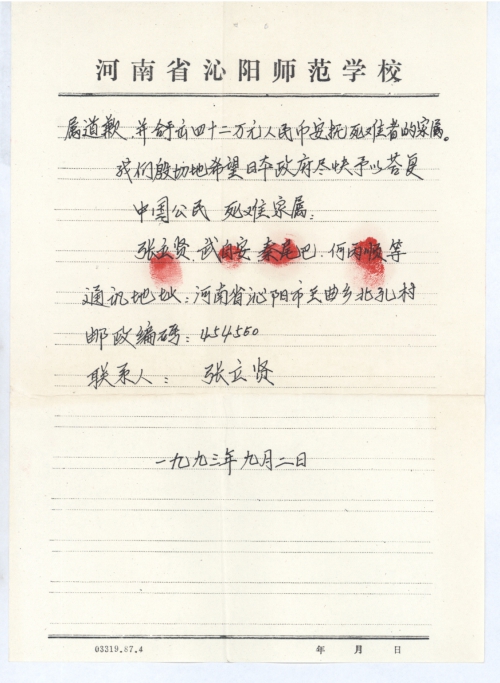 河南省沁阳师范学校
属道歉,并寄去四十二万元人民币安抚死难者的家属。
我们殷切地希望日本政府尽快予以荅复
中国公民 死难家属:
张立贤、武 安 秦尾巴、何丙顺等
通讯地址:河南省沁阳市 曲乡北孔村
邮政编码:454550
联系人: 张立贤
一九九三年九月二日
03319.87.4 年 月 日